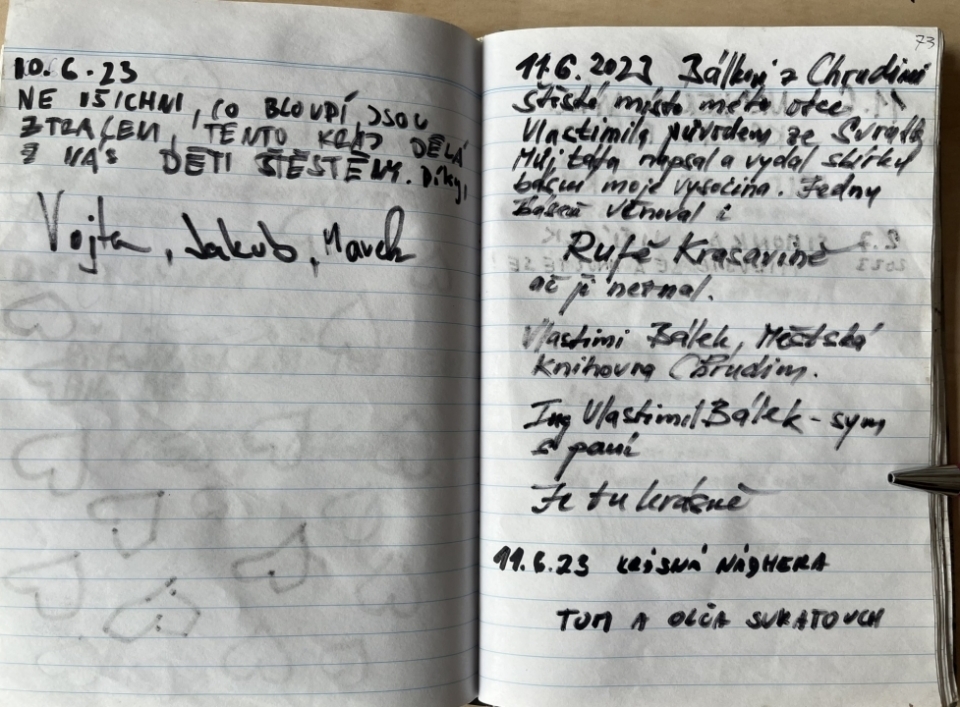 10.6.23
NE VŠICHNI, CO BLOUDÍ, JSOU
ZTRACENI, TENTO KRAJ DĚLÁ
Z NÁS DĚTI ŠTĚSTĚNY. Díky,
Vojta, Jakub, Marek
73
11.6.2023 Bálkovi z Chrudimi
místo mého otce
Vlastimila původem ze
Můj táta napsal a vydal sbírku
básní moje vysočina. Jednu
báseň věnoval i
Rutě Krasavině
ač ji neznal.
Vlastimi Bálek, Městská
Knihovna Chrudim.
Ing Vlastimil Bálek - syn
s paní
Je tu krásně
11.6.23 KRÁSNÁ NÁDHERA
TOM A OLČA